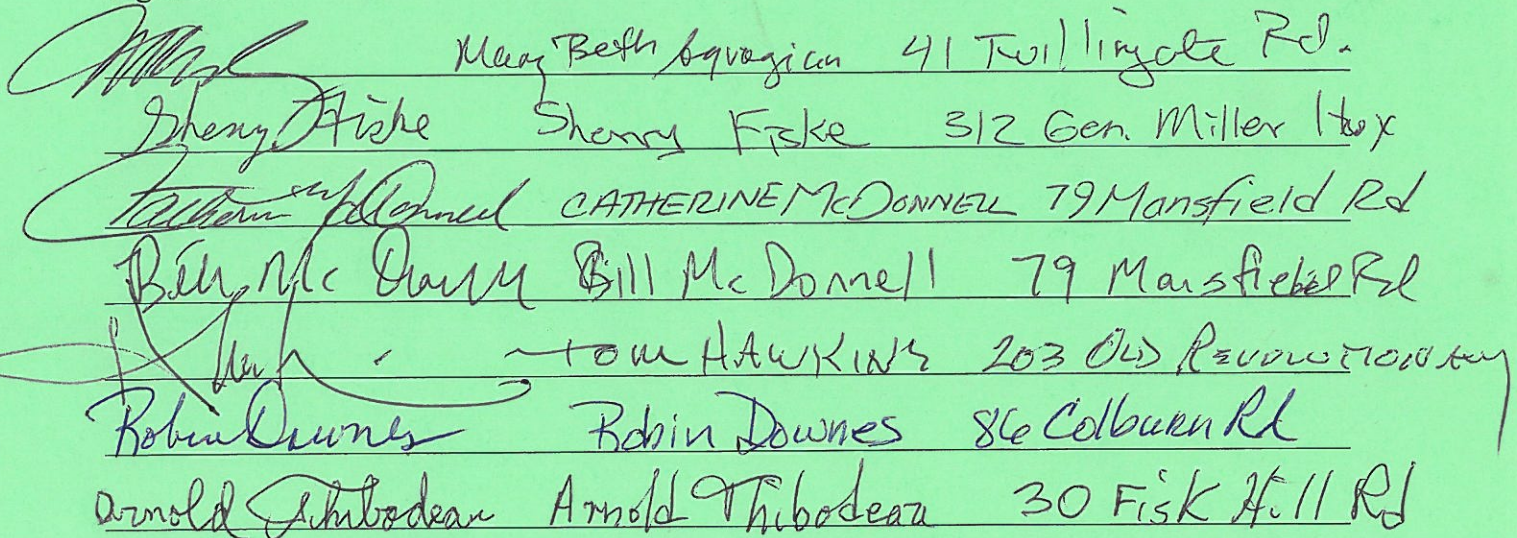 Mary Beth 41 Twillingate Rd.
Sherry Fiske Sherry Fiske 312 Gen. Miller Hwy
Catherine McDonnell CATHERINE McDONNELL 79 Mansfield Rd
Bill McDonnell Bill McDonnell 79 Mansfield Rd
Tom HAWKINS 203 OLD REVOLUTIONARY
Robin Downes Robin Downes 86 Colburn Rd
Arnold Thibodeau Arnold Thibodeau 30 Fisk Hill Rd